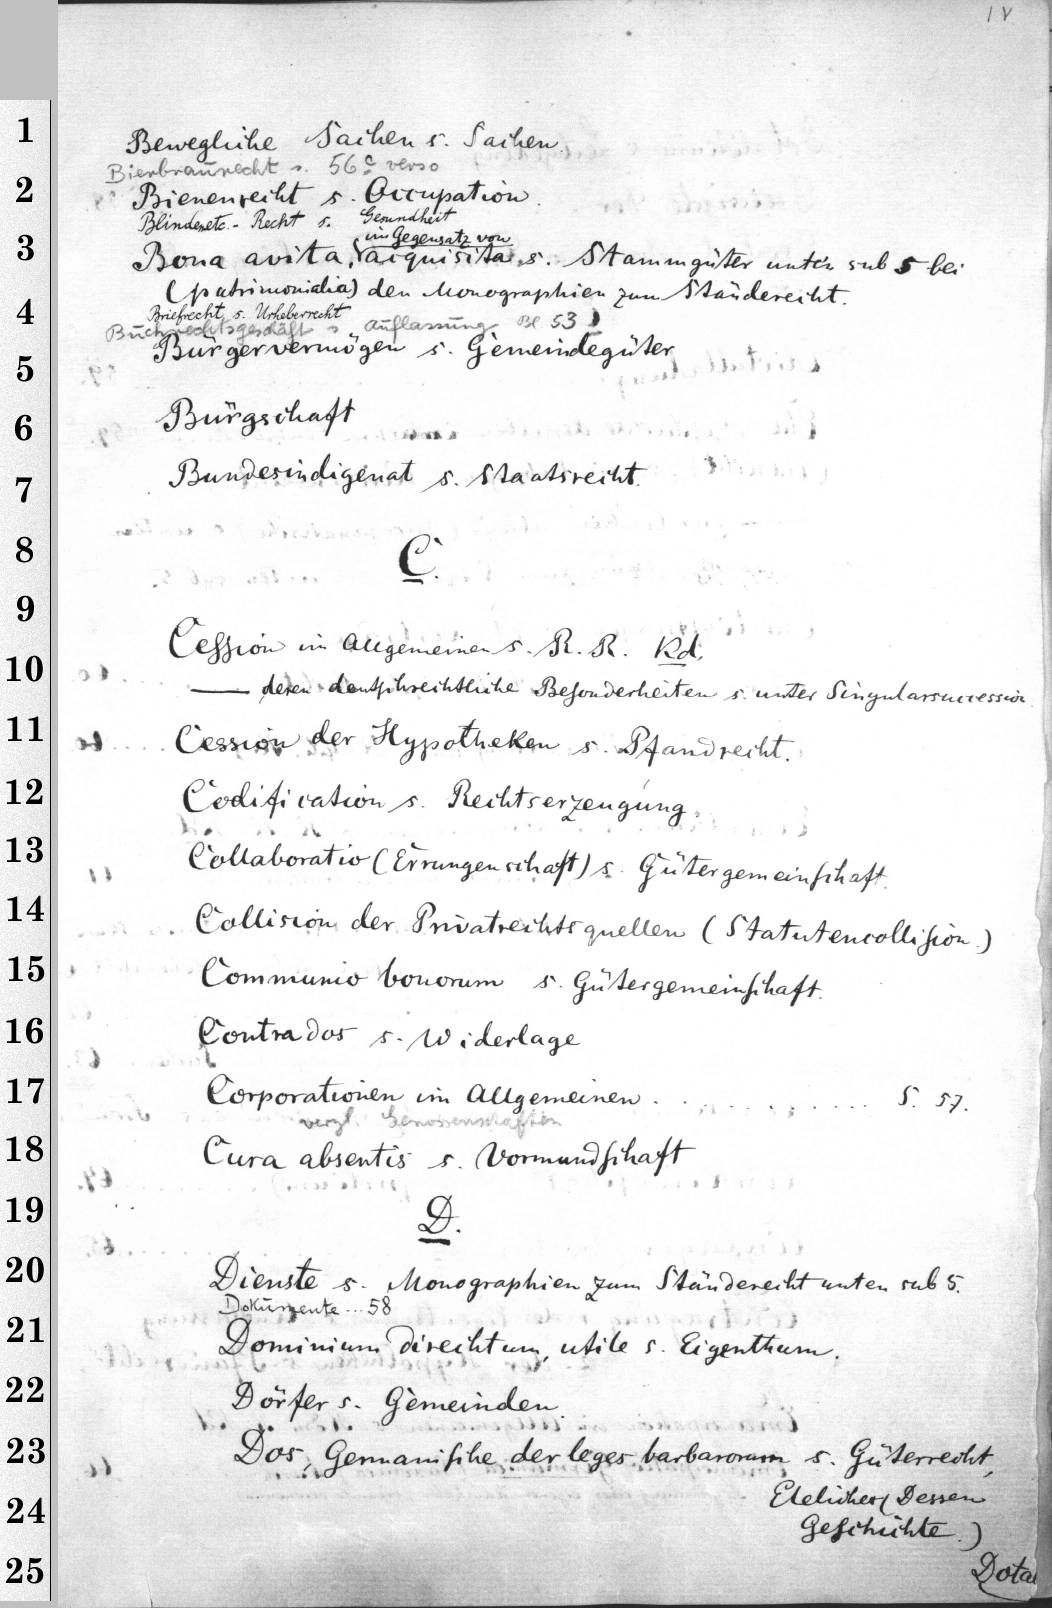 IV
1
Bewegliche Sachen s. Sachen.
Bierbraurecht s. 56c verso
2
Bienenrecht s. Occupation.
Blinden etc. - Recht s. Gesundheit
im Gegensatz von
3
Bona avita, acquisita s. Stammgüter unter sub 5 bei
(patrimonialia) den Monographien zum Ständerecht.
4
Briefrecht s. Urheberrecht
Buchrechtsgeschäft s. Auflassung Bl 53
Bürgervermögen s. Gemeindegüter
5
6
Bürgschaft
7
Bundesindigenat s. Staatsrecht.
8
C.
9
Cession im Allgemeinen s. R. R. Rd.
10
— deren deutschrechtliche Besonderheiten s. unter Singularsuccession
11
Cession der Hypotheken s. Pfandrecht.
12
Codification s. Rechtserzeugung.
13
Collaboratio (Errungenschaft) s. Gütergemeinschaft.
14
Collision der Privatrechtsquellen (Statutencollision.)
15
Communio bonorum s. Gütergemeinschaft.
16
Contrados s. Widerlage
17
Corporationen im Allgemeinen . . . . . . . . . . . . S. 57.
vergl. Genossenschaften
18
Cura absentis s. Vormundschaft
19
D.
20
Dienste s. Monographien zum Ständerecht unten sub 5.
Dokumente ... 58
21
Dominium directum, utile s. Eigenthum.
22
Dörfer s. Gemeinden.
23
Dos, Germanische der leges barbarorum s. Güterrecht,
24
Eheliches (Dessen
Geschichte.)
25
Dotal